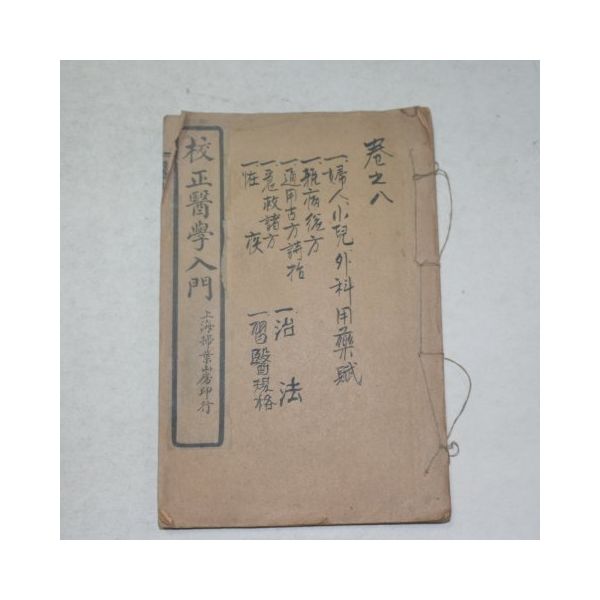 卷之八
一婦人小兒外科用藥賦
一雜病從方
一通用古方詩括
一急救諸方
一怪疾
一治法
一習醫規格
校正醫學入門
上海掃葉山房印行